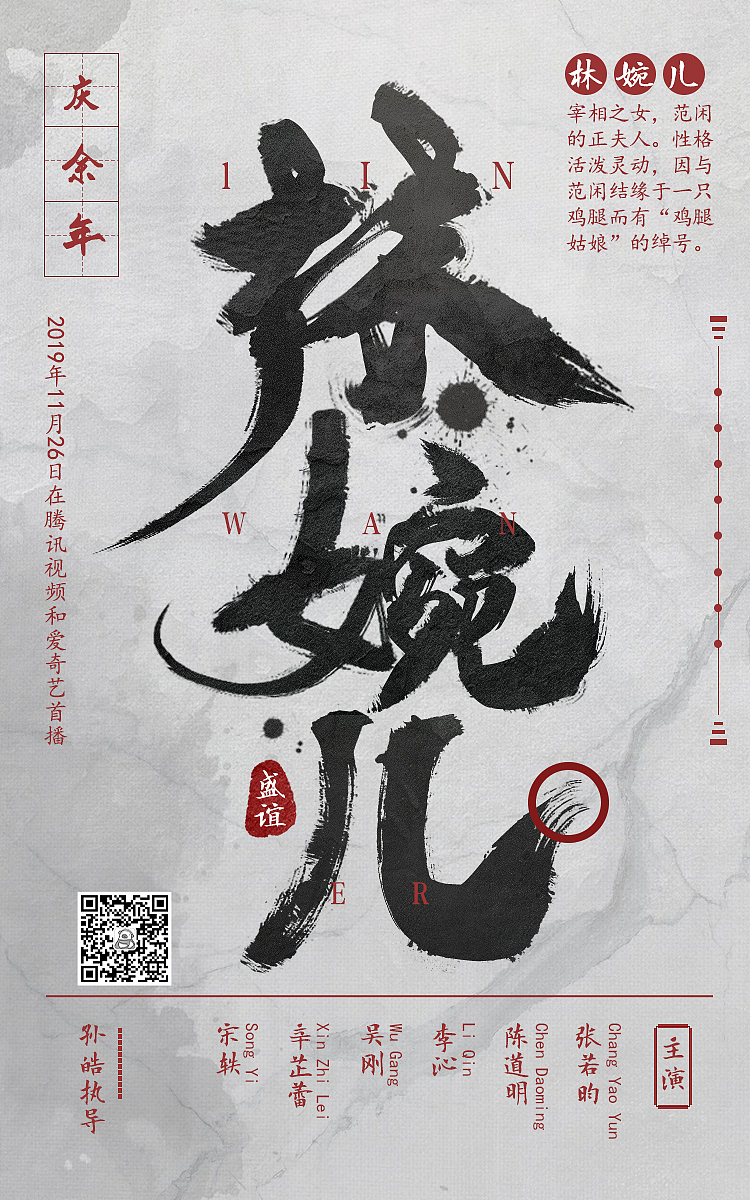 庆余年
林婉儿
宰相之女，范闲
的正夫人。性格
活泼灵动，因与
范闲结缘于一只
鸡腿而有“鸡腿
姑娘”的绰号。
林婉儿
lIN
WAN
ER
2019年11月26日在腾讯视频和爱奇艺首播
盛谊
主演
张若昀
Chang Yao Yun
陈道明
Chen Daoming
李沁
Li Qin
吴刚
Wu Gang
辛芷蕾
Xin Zhi Lei
宋轶
Song Yi
孙皓执导